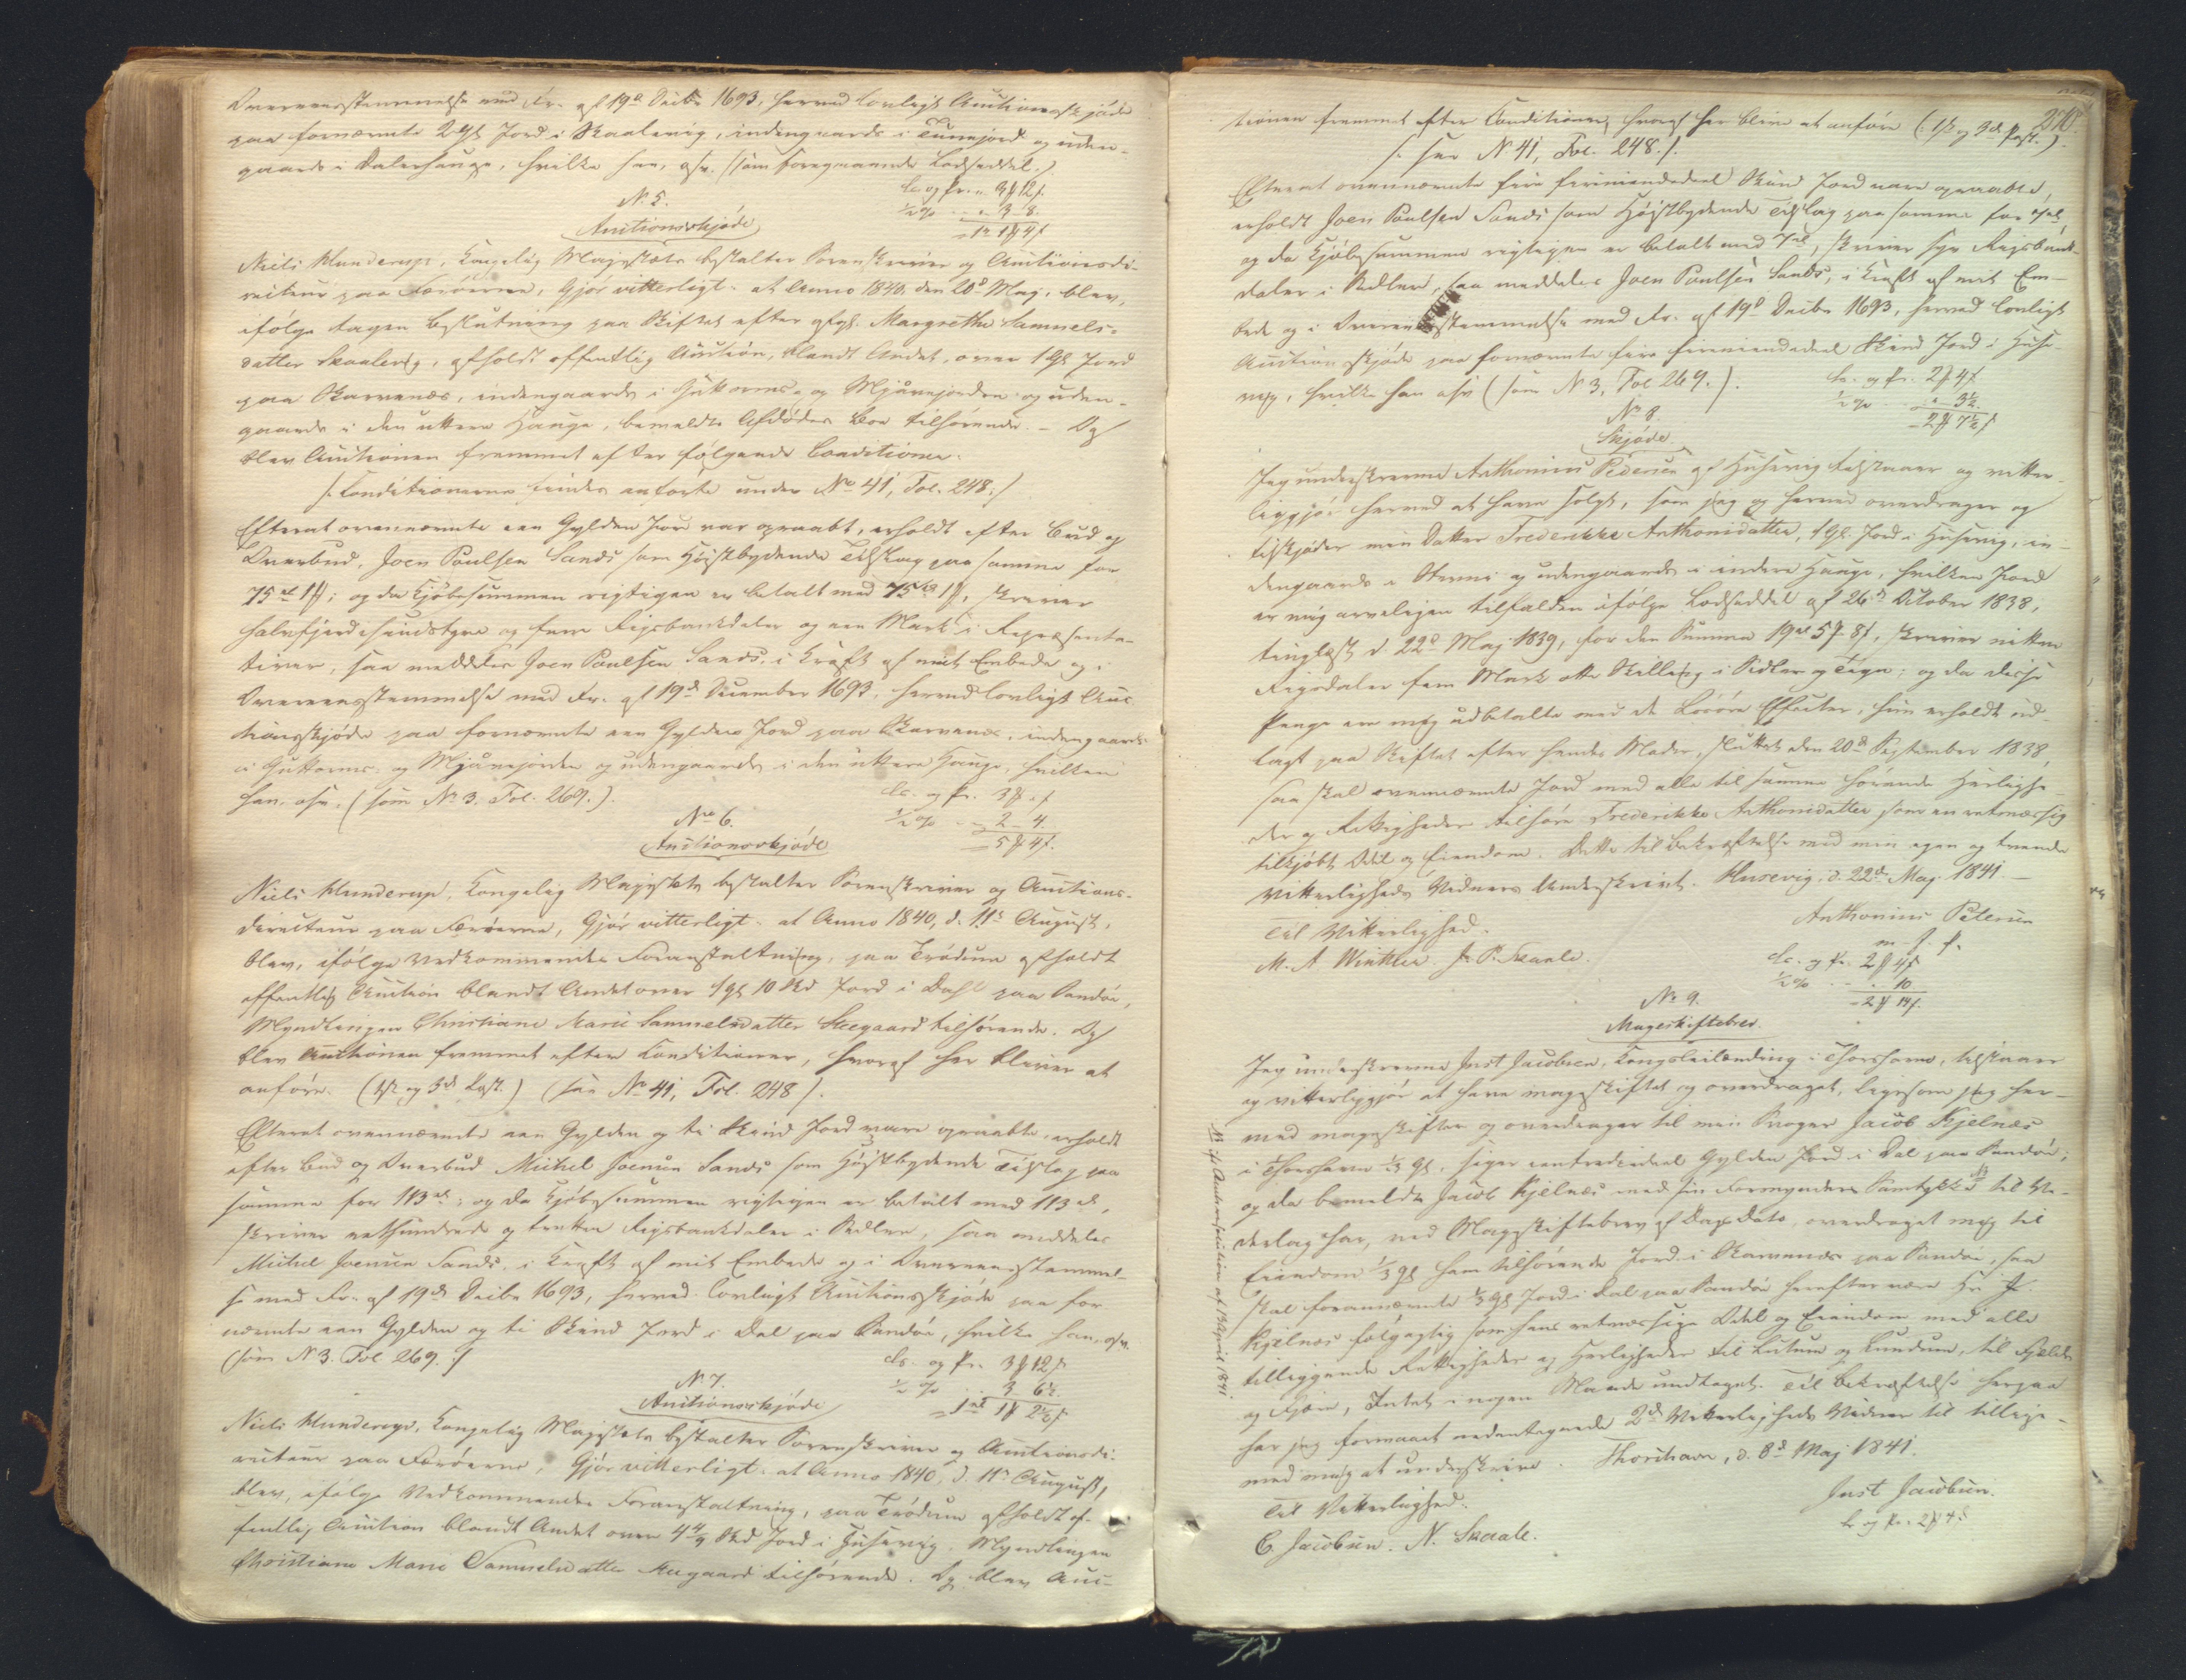 Overeensstemmelse med Fr. af 19de Decbr. 1693, herved lovligt Auctionsskjøde
paa fornævnte 2 Gl. Jord i Skaalevig, indengaards i Tunnjord og uden-
gaards i Dalerhauge, hvilke han, osv. (som foregaaende Lodseddel.)
No. 5. Ls. og Pr. " 3 ₰ 12 s
Auctionsskjøde ½ % . . " 3 - 8
= 1 r. 1 ₰ 4 s
Niels Munderup, Kongelig Majestæts bestalter Sorenskriver og Auctionsdi-
recteur paa Færøerne, Gjør vitterligt: at Anno 1840 den 20de Maj, blev,
ifølge tagen Beslutning paa Skiftet efter afgl. Margrethe Samuels-
datter Skaalevig, afholdt offentlig Auction, blandt Andet, over 1 Gl. Jord
paa Skarvenæs, indengaards i Guttorms- og Mjåvejorden og uden-
gaards i den uttere Hauge, bemeldte Afdødes Boe tilhørende. - Og
blev Auctionen fremmet efter følgende Conditioner:
/: Conditionerne findes anførte under No 41, Fol. 248 :/
Efterat ovennævnte een Gylden Jord var opraabt, erholdt efter Bud og
Overbud, Joen Poulsen Sands som Høistbydende Tilslag paa samme for
75 rd 1 ₰; og da Kjøbesummen rigtigen er betalt med 75 rd 1 ₰, skriver
halvfjerdsindstyve og fem Rigsbankdaler og een Mark i Repræsenta-
tiver, saa meddeles Joen Poulsen Sands, i Kraft af mit Embede og i
Overeensstemmelse med Fr. af 19de December 1693, herved lovligt Auc-
tionsskjøde paa fornævnte een Gylden Jord paa Skarvenæs, indengaards
i Guttorms- og Mjåvejorden og udengaards i den uttere Hauge, hvilken
han, osv. (som No 3. Fol. 269.).
No 6. Ls. og Pr. 3 ₰ . s
Auctionsskjøde ½ % . . 2 - 4.
= 5 ₰ 4 s.
Niels Munderup, Kongelig Majestæts bestalter Sorenskriver og Auctions-
directeur paa Færøerne, Gjør vitterligt: at Anno 1840, d. 11te August,
blev, ifølge Vedkommendes Foranstaltning, paa Trødum afholdt
offentlig Auction blandt Andet over 1 Gl 10 Skd Jord i Dahl paa Sandøe,
Myndlingen Christiane Marie Samuelsdatter Steegaard tilhørende. Og
blev Auctionen fremmet efter Conditioner, hvoraf her bliver at
anføre. (1ste og 3die Post.) (see No 41, Fol. 248 ).
Efterat ovennævnte een Gylden og ti Skind Jord vare opraabte, erholdt
efter Bud og Overbud Michel Joensen Sands som Høistbydende Tilslag paa
samme for 113 rd; og da Kjøbesummen rigtigen er betalt med 113 rd,
skriver eethundrede og tretten Rigsbankdaler i Sedler, saa meddeles
Michel Joensen Sands, i Kraft af mit Embede og i Overeensstemmel-
se med Fr. af 19de Decbr 1693, herved lovligt Auctionsskjøde paa for
nævnte een Gylden og ti Skind Jord i Dal paa Sandøe, hvilke han, osv.
(som N 3. Fol 269. :/ Ls. og Pr. 3 ₰ 12 s
No 7. ½ % . . 3 6½.
Auctionsskjøde = 1 rd 1 ₰ 2½ s
Niels Munderup, Kongelig Majestæts bestalter Sorenskriver og Auctionsdi-
recteur paa Færøerne, Gjør vitterligt: at Anno 1840, d. 11te August,
blev, ifølge Vedkommendes Foranstaltning, paa Trødum afholdt of-
fentlig Auction blandt Andet over 4 4/9 Skd Jord i Husevig, Myndlingen
Christiane Marie Samuelsdatter Steegaard tilhørende. Og blev Auc-
270.
tionen fremmet efter Conditioner, hvoraf her blive at anføre (: 1ste og 3die Post.).
/: see N 41, Fol. 248./.
Efterat ovennævnte fire fireniendedeel Skind Jord vare opraabte,
erholdt Joen Poulsen Sands som Høistbydende Tilslag paa samme for 7 rd
og da Kjøbesummen rigtigen er betalt med 7 rd, skriver syv Rigsbank-
daler i Sedler, saa meddeles Joen Poulsen Sands, i Kraft af mit Em-
bede og i Overeensstemmelse med Fr. af 19de Decbr 1693, herved lovligt
Auctionsskjøde paa fornævnte fire fireniendedeel Skind Jord i Huse-
vig, hvilke han osv (som N 3, Fol 269.). Ls. og Pr. 2 ₰ 4 s
No 8. ½ % . . " 3½
Skjøde = 2 ₰ 7½ s
Jeg underskrevne Anthonius Pedersen af Husevig tilstaaer og vitter-
liggjør herved at have solgt, som jeg og herved overdrager og
tilskjøder min Datter Frederikke Anthonidatter, 1 Gl. Jord i Husevig, in-
dengaards i og udengaards i indere Hauge, hvilken Jord
er mig arveligen tilfalden ifølge Lodseddel af 26de October 1838,
tinglæst d. 22de Maj 1839, for den Summa 19 rd 5 ₰ 8 s, skriver nitten
Rigsdaler fem Mark otte Skilling i Sedler og Tegn; og da disse
Penge ere mig udbetalte med de Løsøre Effecter, hun erholdt ud-
lagt paa Skiftet efter hendes Moder, sluttet den 20de September 1838,
saa skal ovennævnte Jord med alle til samme hørende Herlighe-
der og Rettigheder tilhøre Frederikke Anthonidatter som en retmæssig
tilkjøbt Odel og Eiendom. Dette til Bekræftelse med min egen og tvende
Vitterligheds Vidners Underskrivt. Husevig, d. 22de Maj 1841. -
Til Vitterlighed. Anthonius Petersen
M. A. Winther. J. P. Skaale. m. f. P.
Ls. og Pr. 2 ₰ 4 s
No 9. ½ % . . . 10
Mageskiftebrev. = 2 ₰ 14 s.
Jeg underskrevne Just Jacobsen, Kongsleilænding i Thorshavn, tilstaaer
og vitterliggjør at have mageskiftet og overdraget, ligesom jeg her-
med mageskifter og overdrager til min Svoger Jacob Kjelnæs
i Thorshavn ⅓ Gl. siger eentrediedeel Gylden Jord i Dal paa Sandøe;
og da bemeldte Jacob Kjelnæs med sin Formynders Samtykke til Ve-
derlag har, ved Mageskiftebrev af Dags Dato, overdraget mig til
Eiendom ⅓ Gl ham tilhørende Jord i Skarvenæs paa Sandøe, saa
skal forannævnte ⅓ Gl Jord i Dal paa Sandøe herefter være Hr J.
Kjelnæs følgagtig som hans retmæssige Odel og Eiendom med alle
tilliggende Rettigheder og Herligheder til Lutum og Lundum, til Fjelds
og Fjære, Intet i nogen Maade undtaget. Til Bekræftelse herpaa
har jeg formaaet nedentegnede 2de Vitterligheds Vidner til tillige-
med mig at underskrive. Thorshavn, d. 8de Maj 1841.
Til Vitterlighed. Just Jacobsen.
C. Jacobsen. N. Skaale. Ls og Pr. 2 ₰ 4 s
af 13 April 1841